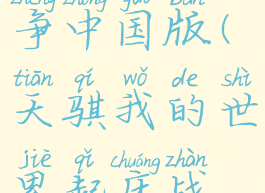 zhēng zhōng guó bǎn
争中国版(
tiān qí wǒ de shì
天骐我的世
jiè qǐ chuáng zhàn
界起床战